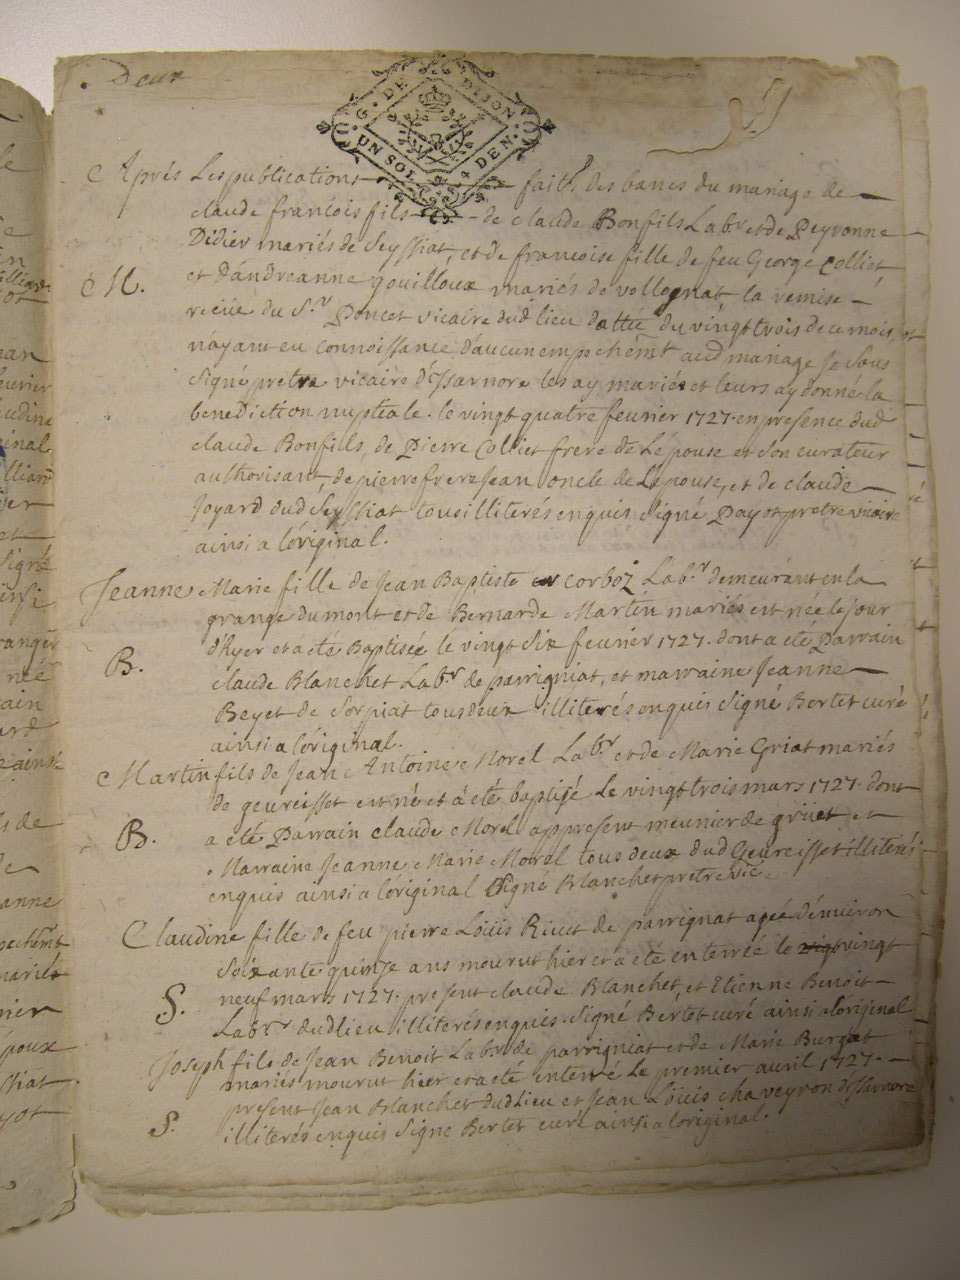 Deux
G. DE DIJON
UN SOL 4 DEN.
Aprés Les publications faites des bancs du mariage de
claude francois fils de claude Bonfils Labr et de Peyronne
Didier mariés de Seyssiat, et de francoise fille de feu George Colliet
et D'andreanne gouilloux mariés de vollognat la remise
M.
recüe du Sr. Poncet vicaire dud lieu dattée du vingt trois de ce mois, et
n'ayant eu connoissance d'aucun empechémt aud mariage je sous
signé pretre vicaire d'Isarnore les ay mariés et leurs ay donné la
benediction nuptiale. le vingt quatre fevrier 1727. en presence dud
claude Bonfills, de Pierre Colliet frere de L'epouse et son curateur
authorisant, de pierre frere Jean oncle de L'epouse, et de claude
Joyard dud Seyssiat tous illiterés enquis Signé Payot pretre vicaire
ainsi a l'original.
Jeanne Marie fille de Jean Baptiste corboz Labr. demeurant en la
grange du mont et de Bernarde Martin mariés est née le jour
d'hyer et a été Baptisée le vingt six fevrier 1727. dont a été Parrain
B.
claude Blanchet Labr de parrigniat, et marraine Jeanne
Beyet de Sorpiat tous deux illiterés enquis Signé Bertet curé
ainsi a l'original.
Martin fils de Jean Antoine Morel Labr et de Marie Griat mariés
de geureisset est né et a été baptisé Le vingt trois mars 1727. dont
B.
a été Parrain claude Morel a present meunier de et
Marraine Jeanne Marie Morel tous deux dud Geureisset illiterés
enquis ainsi a l'original Signé Blanchet pretre vic.
Claudine fille de feu pierre Loüis Rivet de parrignat agée d'environ
soixante quinze ans mourut hier et a été enterrée le vingt
S.
neuf mars 1727. present claude Blanchet, et Etienne Benoit
Labrs dud lieu illiterés enquis Signé Bertet curé ainsi a l'original
Joseph fils de Jean Benoit Labr de parrigniat et de Marie Burgat
mariés mourut hier et a été enterré Le premier avril 1727.
present Jean Blanchet dud Lieu et Jean Loüis chaveyron d'Isarnore
S.
illiterés enquis Signé Bertet curé ainsi a l'original.